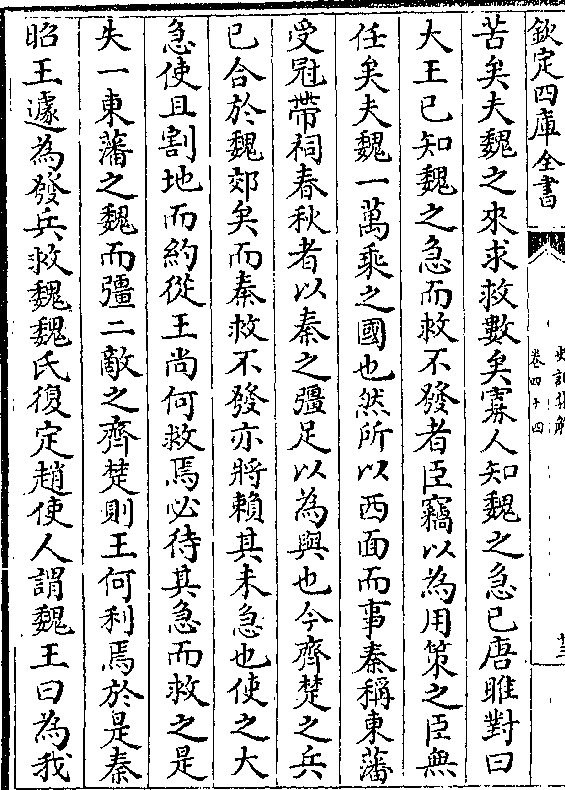 欽定四庫全書
史記集解
卷四十四
十三
苦矣夫魏之來求救數矣寡人知魏之急已唐雎對曰
大王已知魏之急而救不發者臣竊以為用策之臣無
任矣夫魏一萬乘之國也然所以西面而事秦稱東藩
受冠帶祠春秋者以秦之彊足以為與也今齊楚之兵
已合於魏郊矣而秦救不發亦將賴其未急也使之大
急使且割地而約從王尚何救焉必待其急而救之是
失一東藩之魏而彊二敵之齊楚則王何利焉於是秦
昭王遽為發兵救魏魏氏復定趙使人謂魏王曰為我